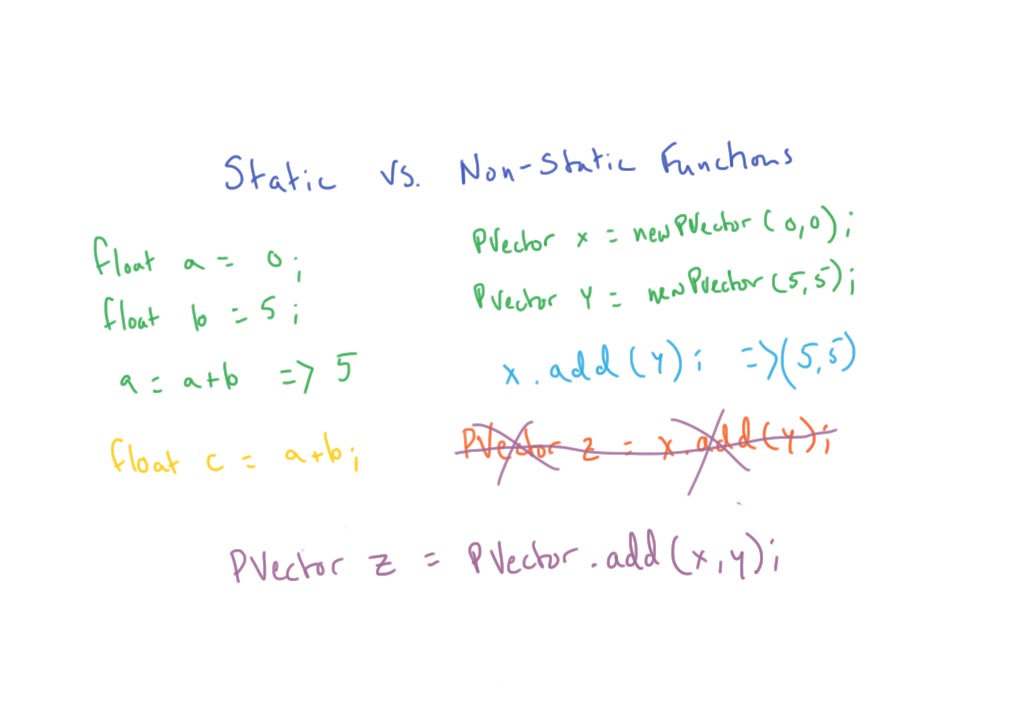 Static vs. Non-Static Functions
float a = 0;
float b = 5;
a = a+b => 5
float c = a+b;
PVector x = new PVector (0,0);
PVector y = new PVector (5,5);
x.add(y); =>(5,5)
PVector z = x.add(y);
PVector z = PVector.add(x,y);